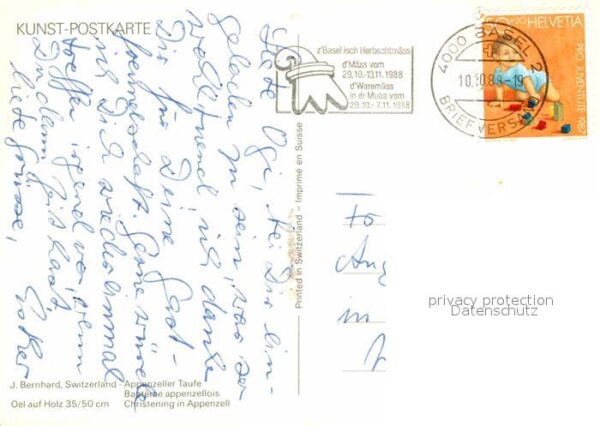 KUNST-POSTKARTE
z'Basel isch Herbschtmäss
d'Mäss vom
29.10.-13.11.1988
d'Waremäss
in dr Muba vom
29.10.-7.11.1988
4000 BASEL 2
10.10.88-19
BRIEFVERSAND
50+20 HELVETIA
PRO JUVENTUTE 1987
Printed in Switzerland – Imprimé en Suisse
bei Dir ein-
geladen zu sein, war
Ich danke
Dir für Deine Gast-
freundschaft. Gerne würde
ich Dich wieder einmal
treffen irgendwo, wenn
Du dann Zeit hast.
Liebe Grüsse,
in
privacy protection
Datenschutz
J. Bernhard, Switzerland - Appenzeller Taufe
Baptême appenzellois
Oel auf Holz 35/50 cm Christening in Appenzell